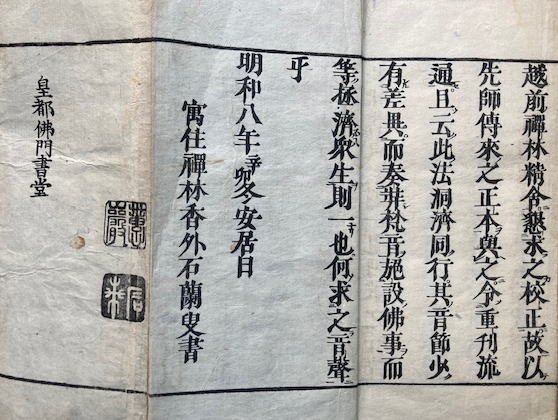 越前禪林精舍懇求之校正故以
先師傳來之正本與之令重刊流
通且云此法洞濟同行其音節少
有差異而奏弉梵音施設佛事而
等拯濟衆生則一也何求之音聲
乎
明和八年辛卯冬安居日
寓住禪林香外石蘭叟書
皇都佛門書堂